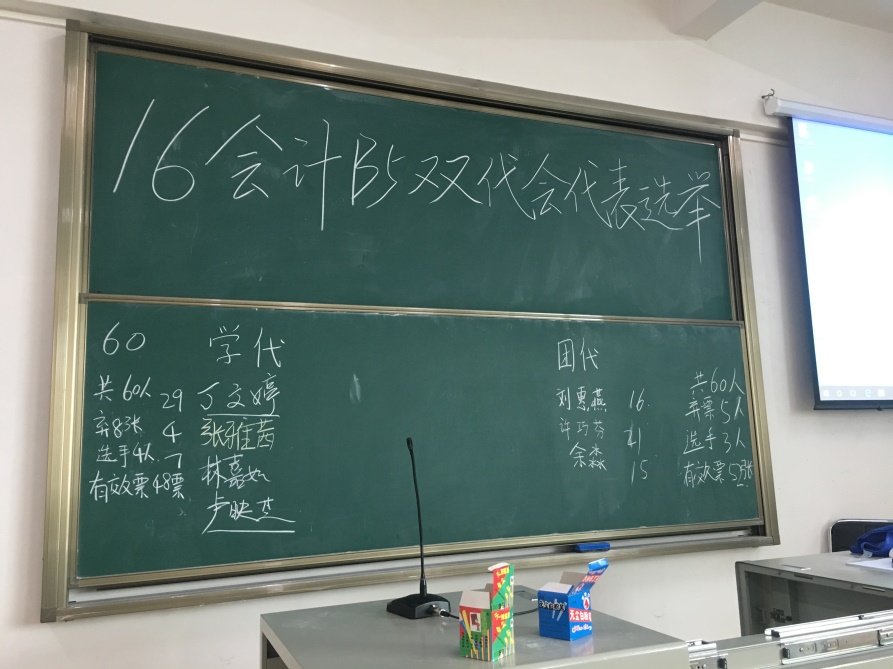 16会计B5双代会代表选举
60 学代
共60人 29 丁文婷
弃8张 4 张雅茜
选手4人 7 林嘉如
有效票48票 卢映杰
团代
共60人
刘惠燕 16
弃票5人
许巧芬 21
选手3人
余淼 15
有效票52张